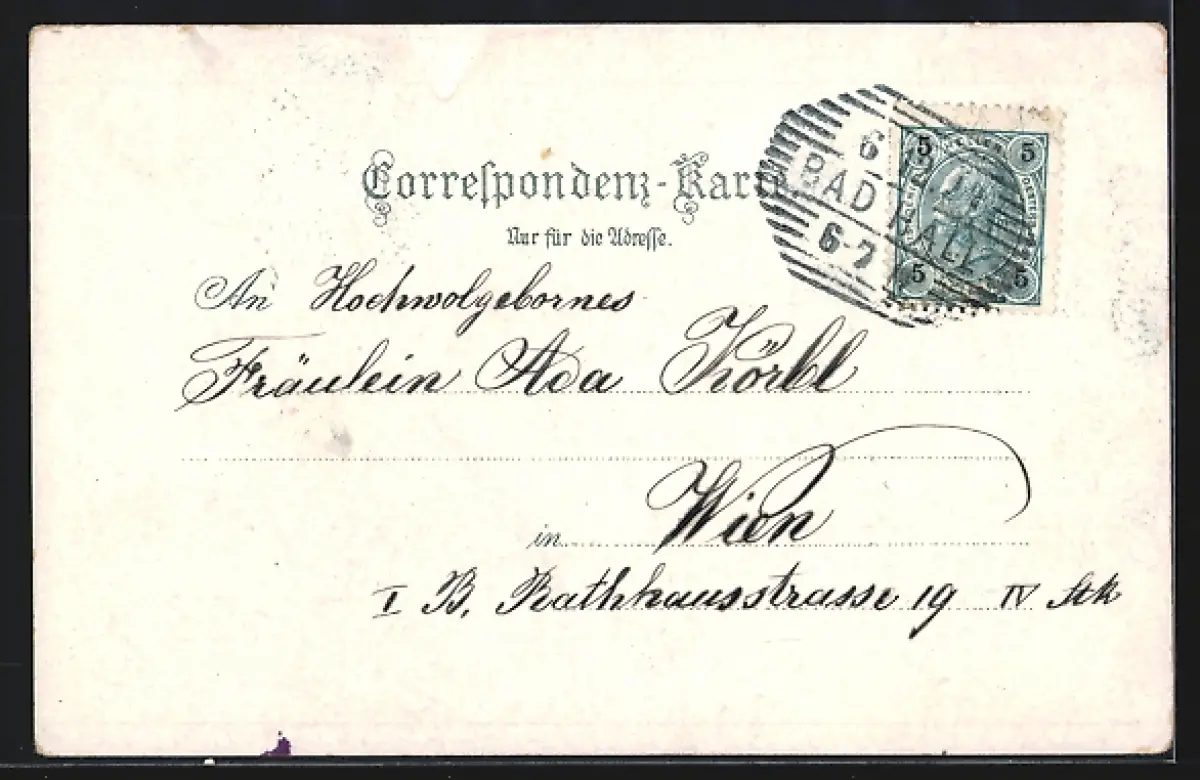 Correspondenz-Karte
Nur für die Adresse.
6
BAD HALL
6-7
5 5
5 5
An Hochwolgebornes
Fräulein Ada Körbl
in Wien
I B. Rathhausstrasse 19 IV Stk